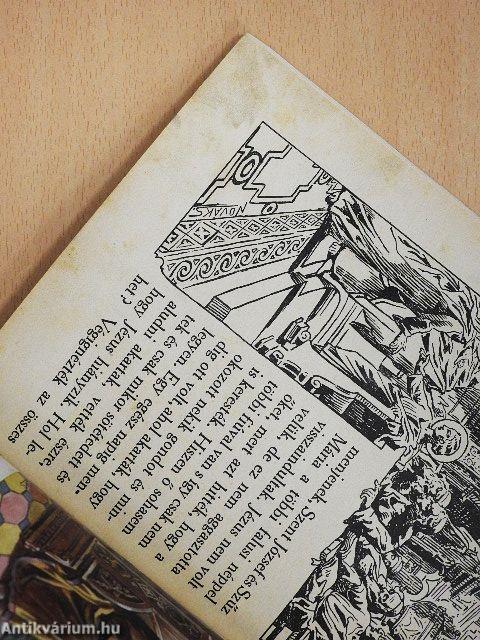 NOVÁK S
menjenek. Szent József és Szűz
Mária a többi falusi néppel
visszaindultak. Jézus nem volt
velük, de ez nem aggasztotta
őket, mert azt hitték, hogy a
többi fiúval van s így csak nem
is keresték. Hiszen ő sohasem
okozott nekik gondot és min-
dig ott volt, ahol akarták, hogy
legyen. Egy egész napig men-
tek és csak mikor sötétedett és
aludni akartak, vették észre,
hogy Jézus hiányzik. Hol le-
het?
Végignézték az összes
Antikvárium.hu